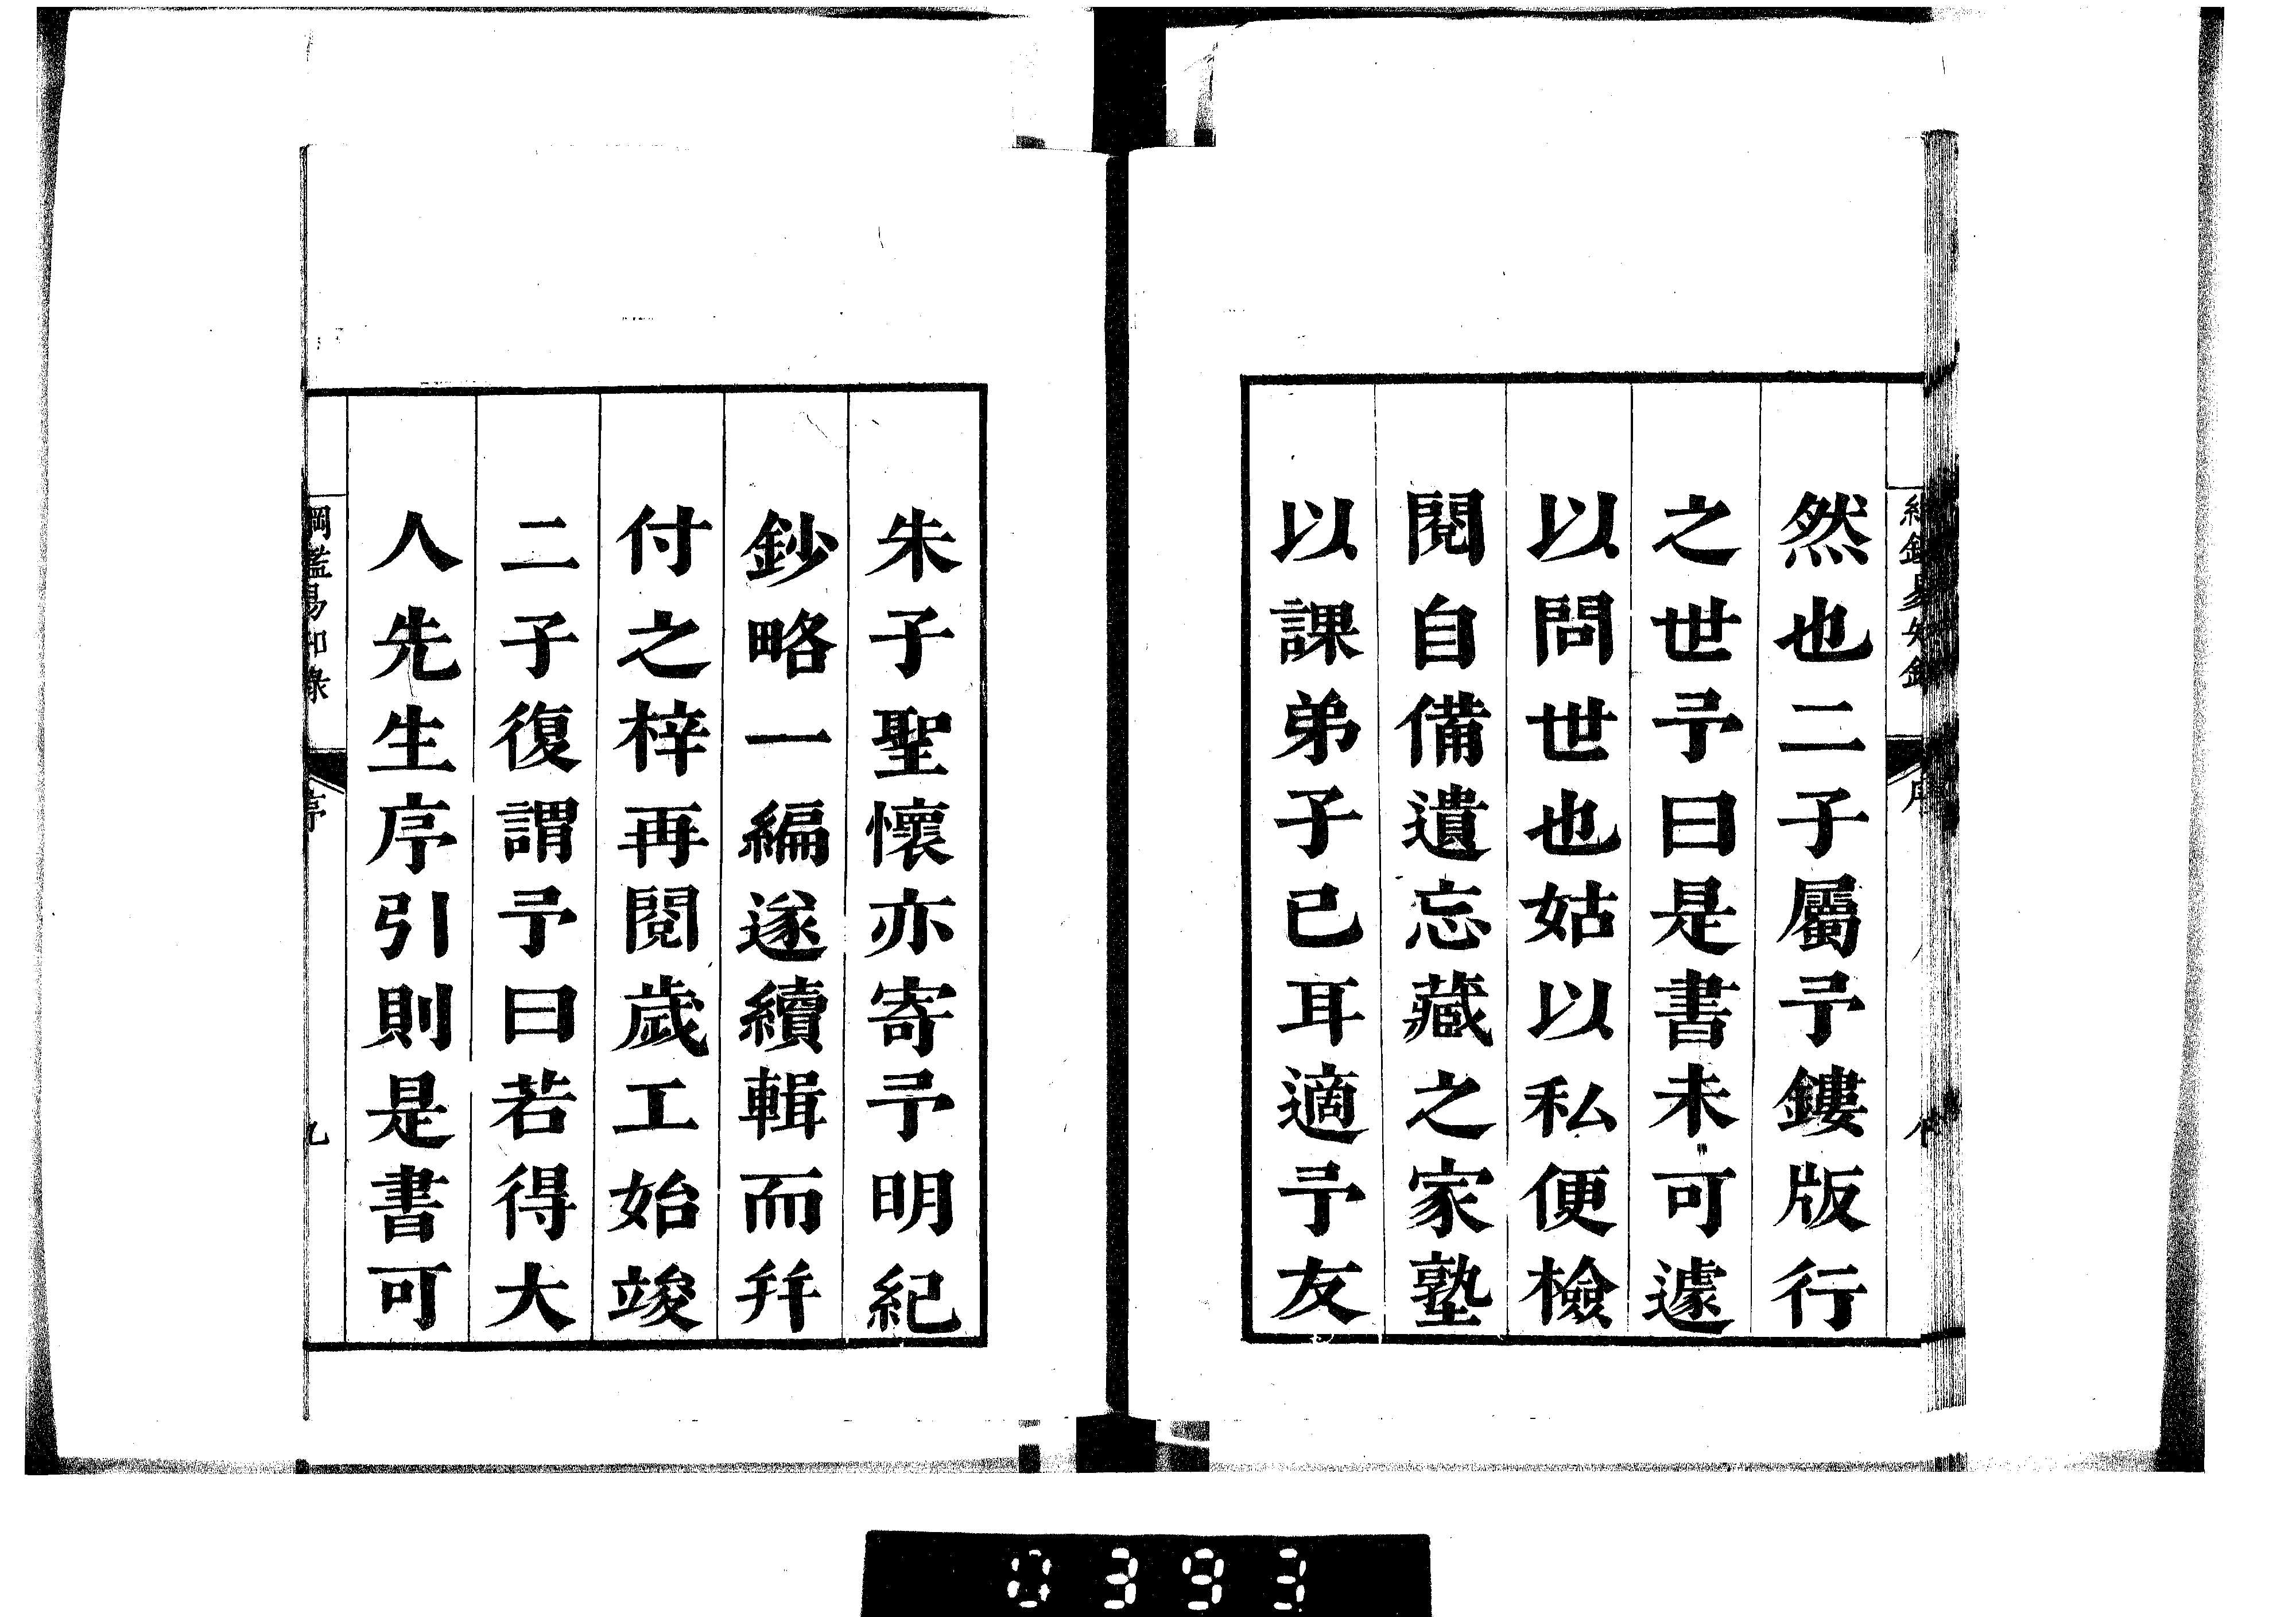 然也二子屬予鏤版行
之世予曰是書未可遽
以問世也姑以私便檢
閱自備遺忘藏之家塾
以課弟子已耳適予友
朱子聖懷亦寄予明紀
鈔略一編遂續輯而并
付之梓再閱歲工始竣
二子復謂予曰若得大
人先生序引則是書可
綱鑑易知錄
序
九
0393